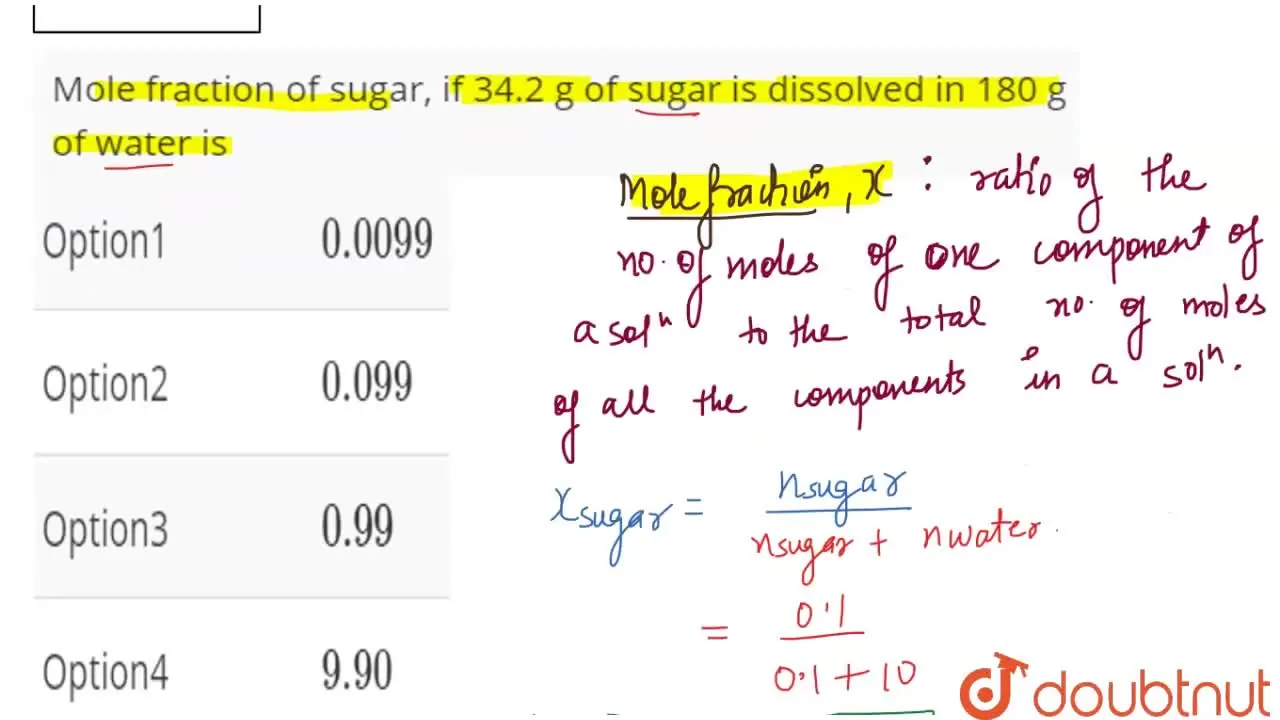 Mole fraction of sugar, if 34.2 g of sugar is dissolved in 180 g
of water is
Option1 0.0099
Option2 0.099
Option3 0.99
Option4 9.90
Mole fraction, x : ratio of the
no. of moles of one component of
a solⁿ to the total no. of moles
of all the components in a solⁿ.
xsugar = nsugar / nsugar + nwater.
= 0.1 / 0.1 + 10
doubtnut